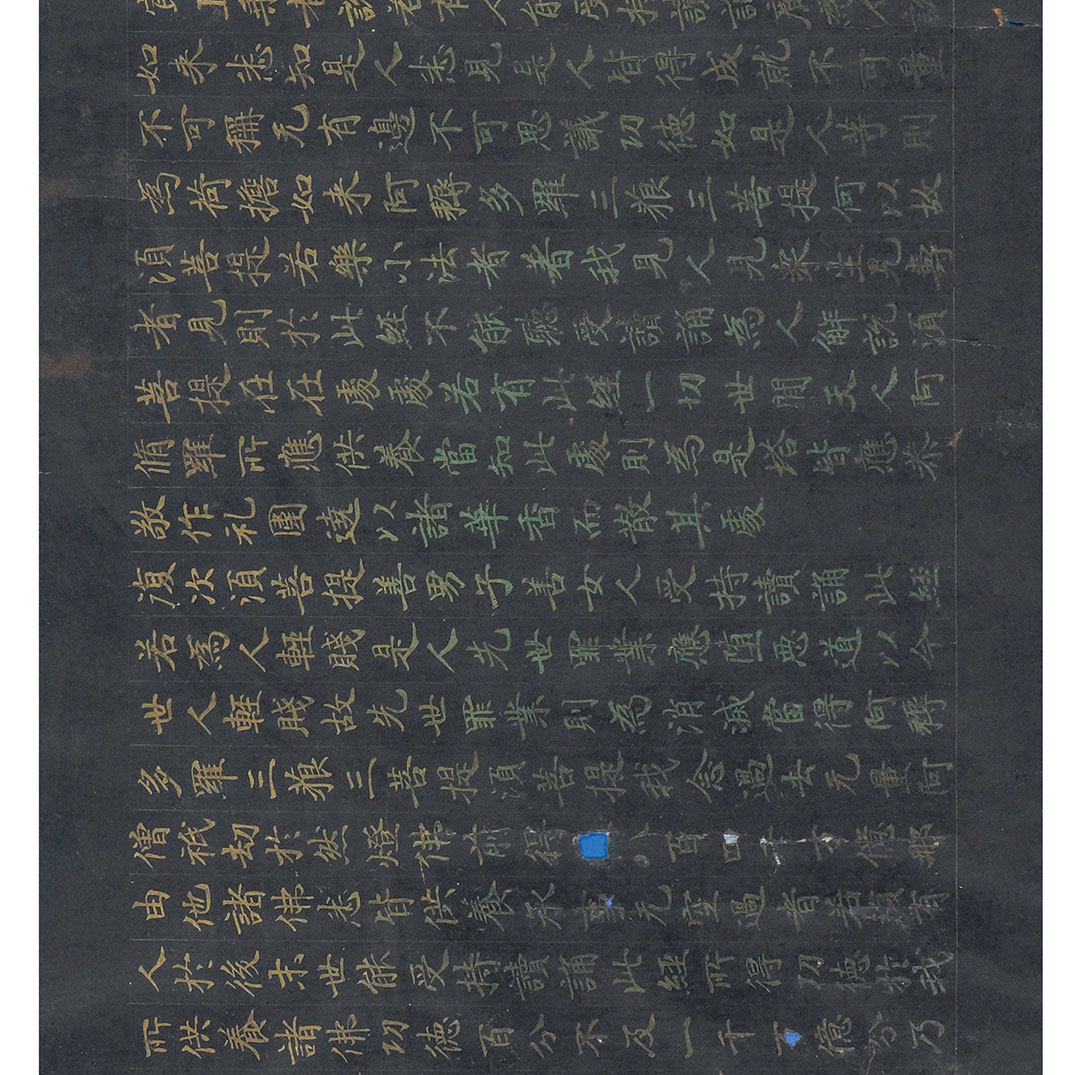 上乘者說若有人能受持讀誦廣為人
如来悉知是人悉見是人皆得成就不可量
不可稱无有邊不可思議功德如是人等則
為荷擔如来阿耨多羅三藐三菩提何以故
須菩提若樂小法者著我見人見衆生見壽
者見則於此經不能聽受讀誦為人解說須
菩提在在處處若有此經一切世間天人阿
脩羅所應供養當知此處則為是塔皆應恭
敬作礼圍遶以諸華香而散其處
復次須菩提善男子善女人受持讀誦此經
若為人輕賤是人先世罪業應墮惡道以今
世人輕賤故先世罪業則為消滅當得阿耨
多羅三藐三菩提須菩提我念過去无量阿
僧祇劫於然燈佛前得八百千万億那
由他諸佛悉皆供養承事无空過者若復有
人於後末世能受持讀誦此經所得功德於我
所供養諸佛功德百分不及一千億分乃